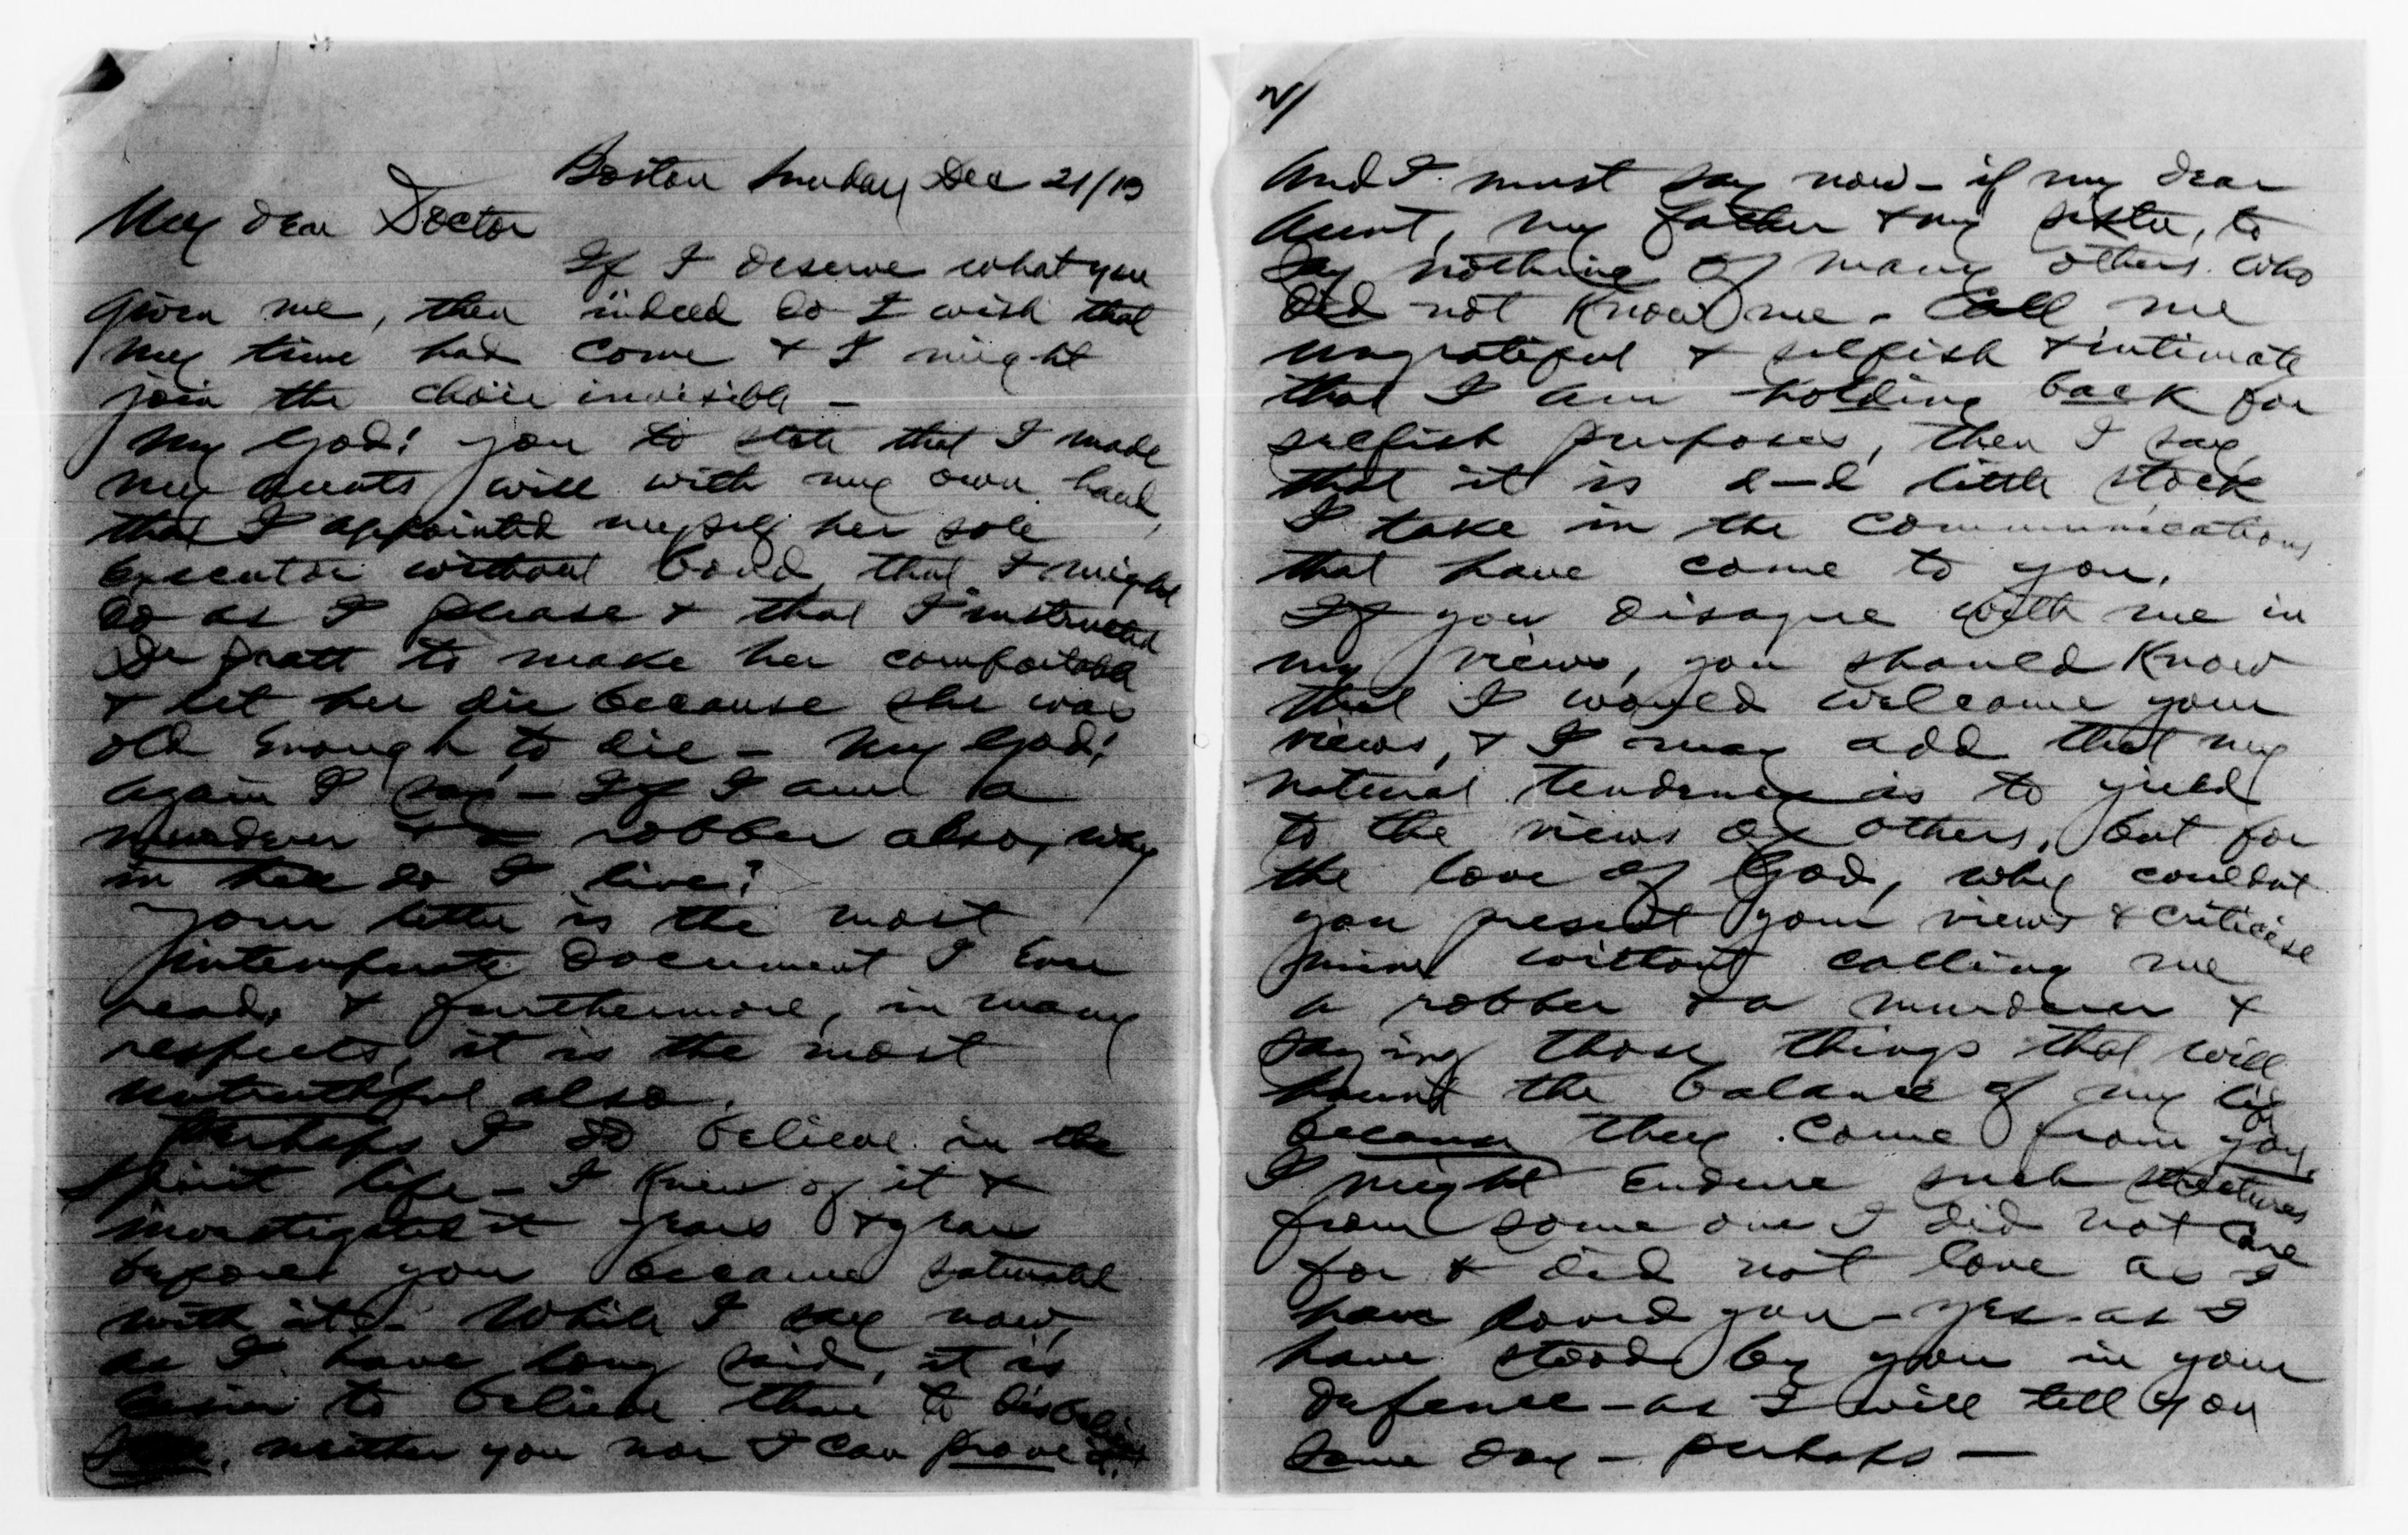 Boston Sunday Dec 21/13
My dear Doctor
If I deserve what you
given me, then indeed do I wish that
my time had come & I might
join the choir invisible —
My God! you to state that I made
my aunts will with my own hand,
that I appointed myself her sole
Executor without bond that I might
do as I please & that I instructed
Dr Pratt to make her comfortable
& let her die because she was
old enough to die — My God!
again I say — If I am a
murderer & a robber also, why
in hell do I live?
Your letter is the most
intemperate document I ever
read, & furthermore, in many
respects, it is the most
untruthful also.
Perhaps I do believe in the
Spirit life — I knew of it &
investigated it years & years
before you became saturated
with it. — While I say now,
as I have long said, it is
easier to believe than to
neither you nor I can prove it.
2/
And I must say now — if my dear
Aunt, my father & my sister, to
say nothing of many others who
did not know me — Call me
ungrateful & selfish & intimate
that I am holding back for
selfish purposes, then I say
that it is d—d little stock
I take in the communications
that have come to you.
If you disagree with me in
my views, you should know
that I would welcome your
views, & I may add that my
natural tendency is to yield
to the views of others, but for
the love of God, why couldnt
you present your views & criticise
mine without calling me
a robber & a murderer &
saying those things that will
haunt the balance of my life
because they come from you.
I might endure such strictures
from some one I did not care
for & did not love as I
have loved you — yes — as I
have stood by you in your
defense — as I will tell you
some day — perhaps —